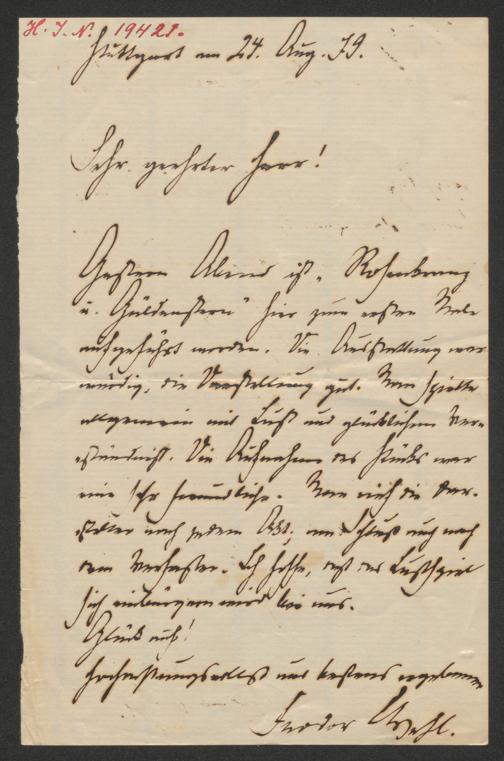 H. I. N. 19421.
Stuttgart am 24. Aug. 79.
Sehr geehrter Herr!
Gestern Abend ist „Rosenkranz
u. Güldenstern" hier zum ersten Male
aufgeführt worden. Die Ausstattung war
würdig, die Darstellung gut. Man spielte
allgemein mit Lust und glücklichem Ver-
ständniß. Die Aufnahme des Stücks war
eine sehr freundliche. Man rief die Dar-
steller nach jedem Akt, am Schluß auch nach
dem Verfasser. Ich hoffe, daß das Lustspiel
sich einbürgern wird bei uns.
Glück auf!
Hochachtungsvollst und bestens ergeben
Feodor Wehl.